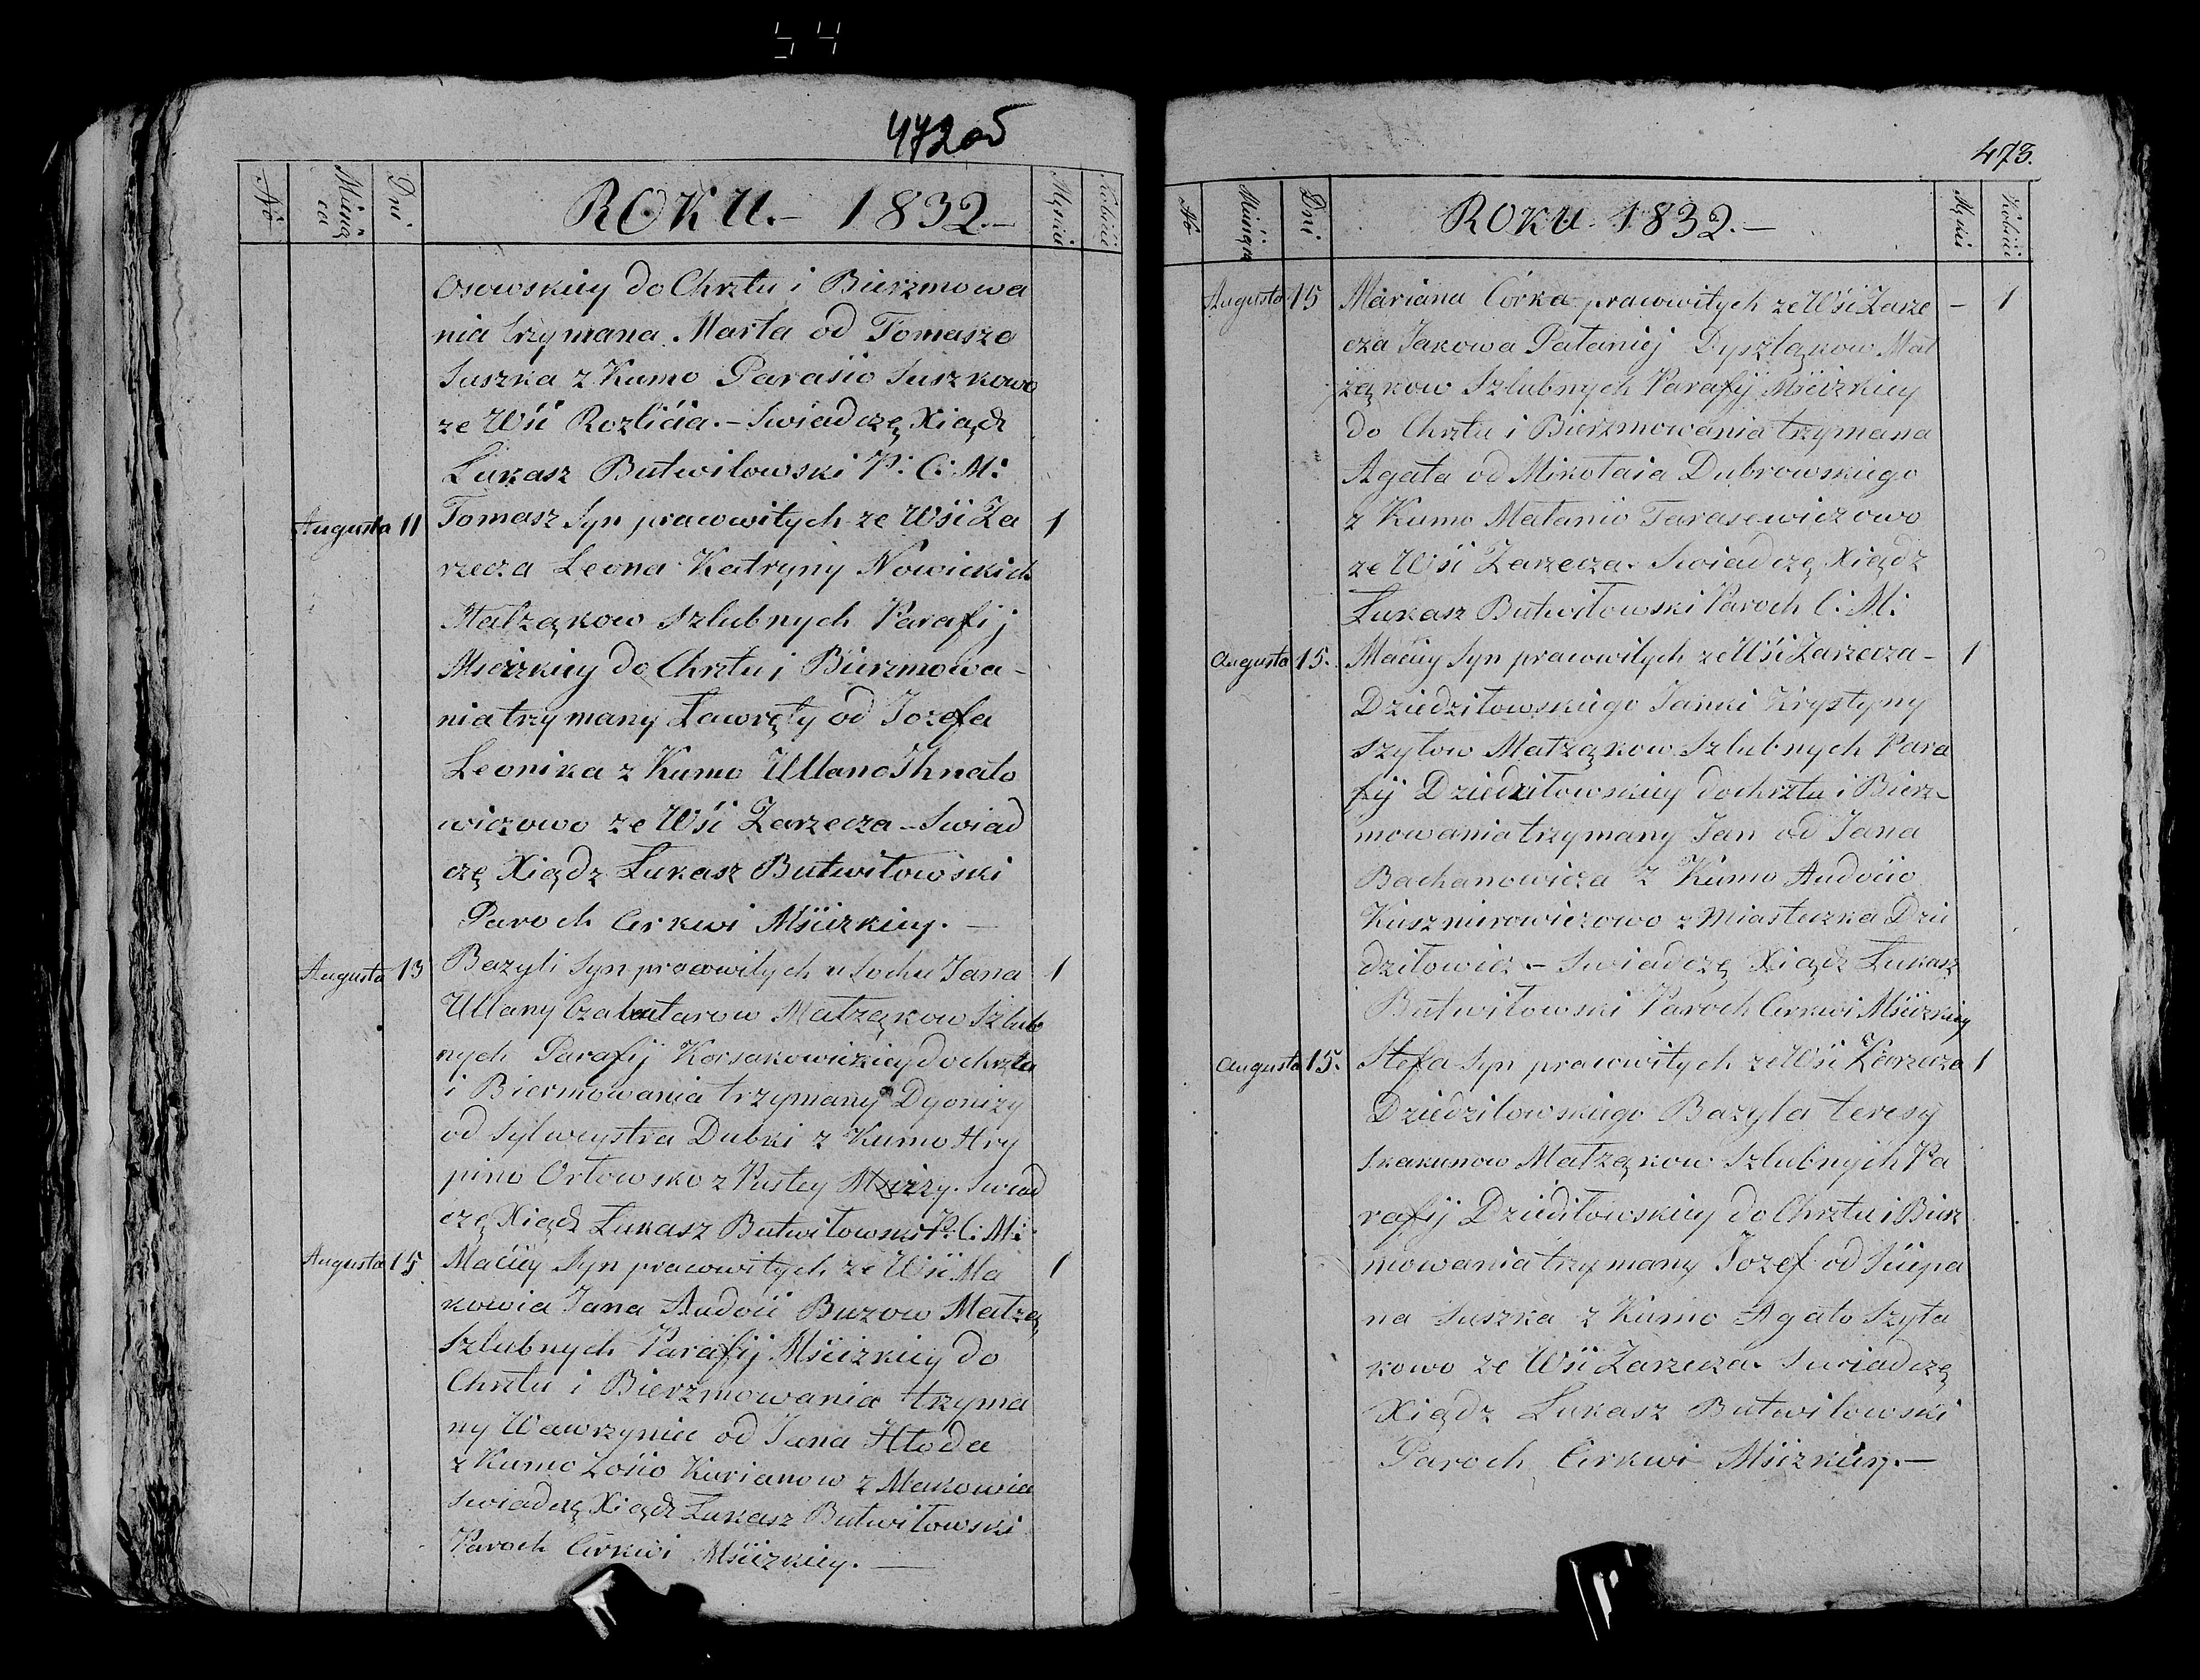 54
472 об
№ Miesiąca Dni ROKU.- 1832.- Męskie Kobiéć
Osowskiey do Chrztu i Bierzmowa
nia trzymana Marta od Tomasza
Suszka z Kumo Parasio Suszkowo
ze Wśi Rozlicia.- Swiadczę Xiądz
Łukasz Butwiłowski P: C: M:
Augusta 11 Tomasz Syn pracowitych ze Wśi Za 1
rzecza Leona Katryny Nowickich
Małżąkow Szlubnych Parafij
Mściżkiey do Chrztu i Bierzmowa-
nia trzymany Ławręty od Jozefa
Leonika z Kumo Ullano Ihnato
wiczowo ze Wśi Zarzecza - Swiad
czę Xiądz Łukasz Butwiłowski
Paroch Cerkwi Mściżkiey. -
Augusta 13 Bazyli Syn pracowitych z Sochu Jana 1
Ullany Małżąkow Szlub
nych Parafij Korsakowickiey do chrztu
i Biermowania trzymany Dyonizy
od Sylweystra Dubki z Kumo Hry
pino Orłowsko z Pustey Mściży. Swiad
czę Xiądz Łukasz Butwiłowski P: C: M:
Augusta 15 Maciey Syn pracowitych ze Wśi Ma 1
kowia Jana Audocii Buzow Małżą
Szlubnych Parafij Mściżkiey do
Chrztu i Bierzmowania trzyma
ny Wawrzyniec od Jana Hłoda
z Kumo Zośio Kurianow z Makowia
Swiadczę Xiądz Łukasz Butwiłowski
Paroch Cerkwi Mściżkiey. -
473.
№ Miesiąca Dni ROKU 1832.- Męskie Kobiéć
Augusta 15 Mariana Córka pracowitych ze Wśi Zarze - 1
cza Jakowa Pałaniej Dyszląkow Mał
żąkow Szlubnych Parafij Mściżkiey
do Chrztu i Bierzmowania trzymana
Agata od Mikołaia Dubrowskiego
z Kumo Małanio Tarasewiczowo
ze Wśi Zarzecza. Swiadczę Xiądz
Łukasz Butwiłowski Paroch C: M:
Augusta 15. Maciey Syn pracowitych ze Wśi Zarzecza - 1
Dziedziłowskiego Janki Krystyny
Szyłow Małżąkow Szlubnych Para
fij Dziedziłowskiey do chrztu i Bierz-
mowania trzymany Jan od Jana
Bachanowicza z Kumo Audocio
Kusznierowiczowo z Miasteczka Dzie
dziłowicz - Swiadczę Xiądz Łukasz
Butwiłowski Paroch Cerkwi Mściżkiey
Augusta 15. Stefa Syn pracowitych ze Wśi Zarzecza 1
Dziedziłowskiego Bazyla Teresy
Skakunow Małżąkow Szlubnych Pa
rafij Dziediłowskiey do Chrztu i Bierz
mowania trzymany Jozef od Sciepa
na Suszka z Kumo Agato Szyła
kowo ze Wśi Zarzecza. Swiadczę
Xiądz Łukasz Butwiłowski
Paroch Cerkwi Mściżkiey. -